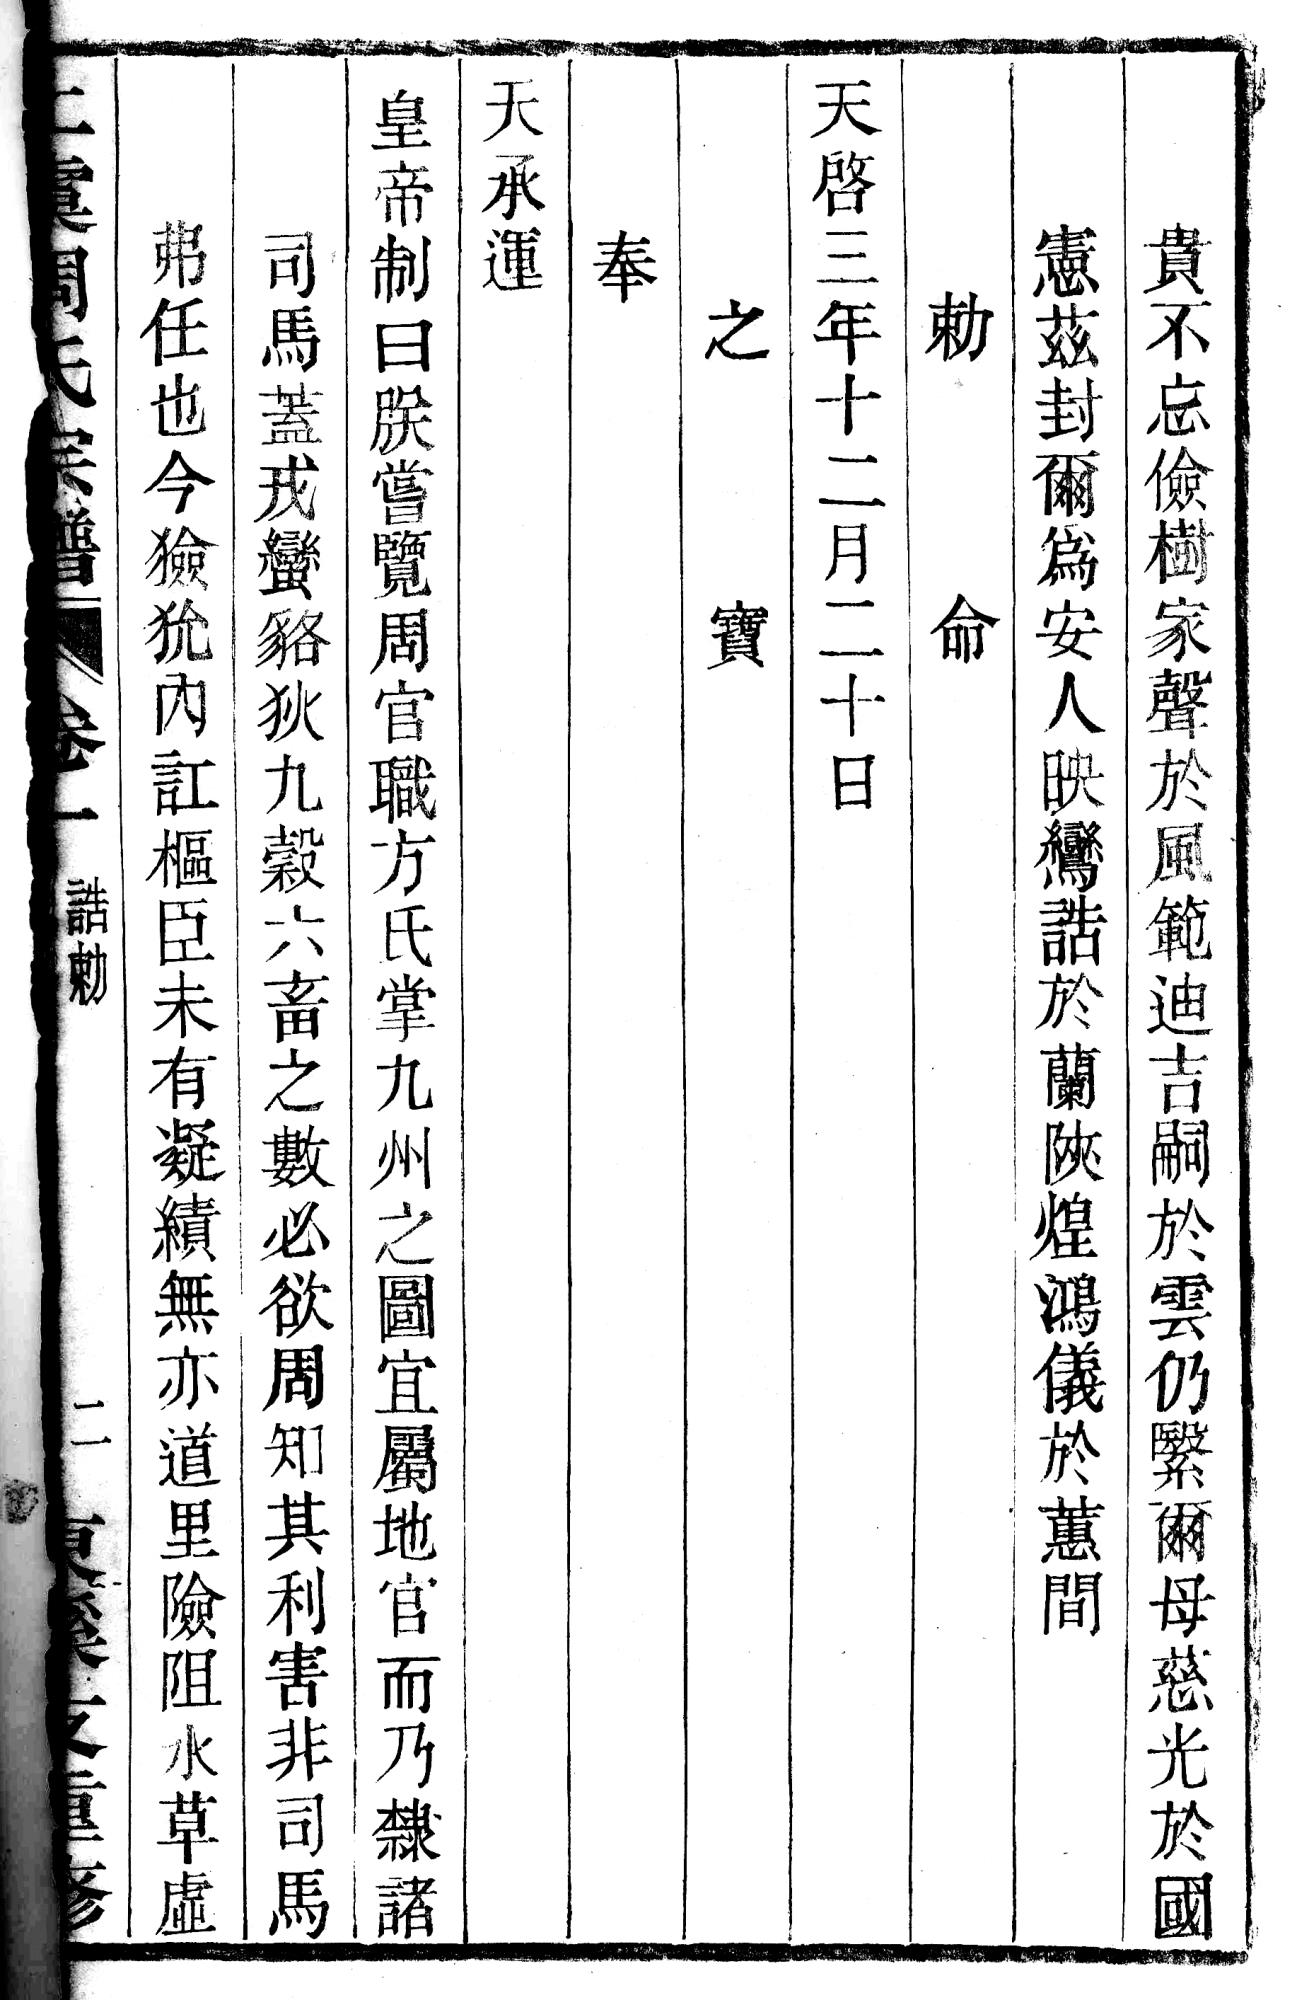 貴不忘儉樹家聲於風範迪吉嗣於雲仍繄爾母慈光於國
憲茲封爾爲安人映鸞誥於蘭陔煌鴻儀於蕙間
勅命
天啓三年十二月二十日
之寶
奉
天承運
皇帝制曰朕嘗覽周官職方氏掌九州之圖宜屬地官而乃隸諸
司馬蓋戎蠻貉狄九穀六畜之數必欲周知其利害非司馬
弗任也今獫狁內訌樞臣未有凝績無亦道里險阻水草虛
上虞周氏宗譜 卷一 誥勅 二 東溪支重修